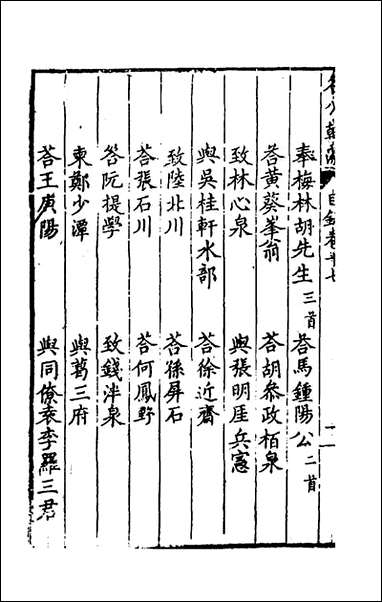 名公翰藻 目錄卷廿七
奉梅林胡先生三首 荅馬鍾陽公二首
荅黃葵峯翁 荅胡叅政栢泉
致林心泉 與張明厓兵憲
與吳桂軒水部 荅徐近齋
致陸北川 荅孫屏石
荅張石川 荅何鳳野
答阮提學 致錢泮泉
柬鄭少潭 與葛三府
荅王庚陽 與同僚袁李羅三君